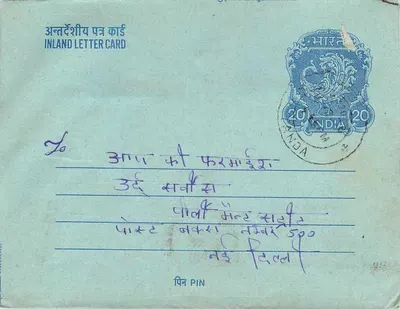 अन्तर्देशीय पत्र कार्ड
INLAND LETTER CARD
भारत
20 20
INDIA
To
आप की फरमाईश
उर्दू सर्वीस
पार्लीमैन्ट स्ट्रीट
पोस्ट बक्स नम्बर 500
नई दिल्ली
पिन PIN